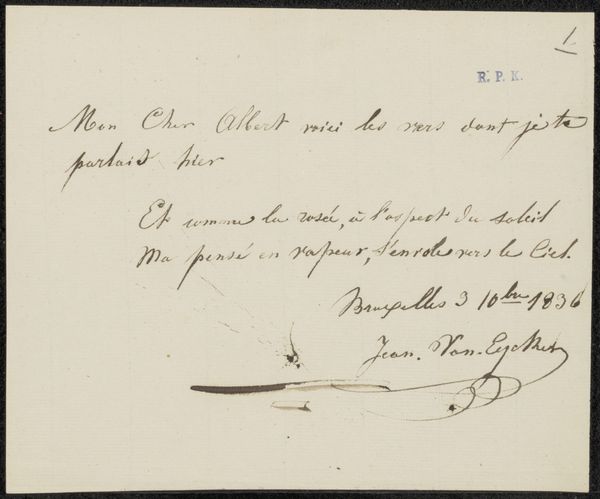 1.
R. P. K.
Mon Cher Albert voici les vers dont je te
parlais hier
Et comme la rosée, à l'aspect du soleil
Ma pensé en vapeur, s'envole vers le Ciel.
Bruxelles 3 10bre 1836
Jean. Van-Eyckhen